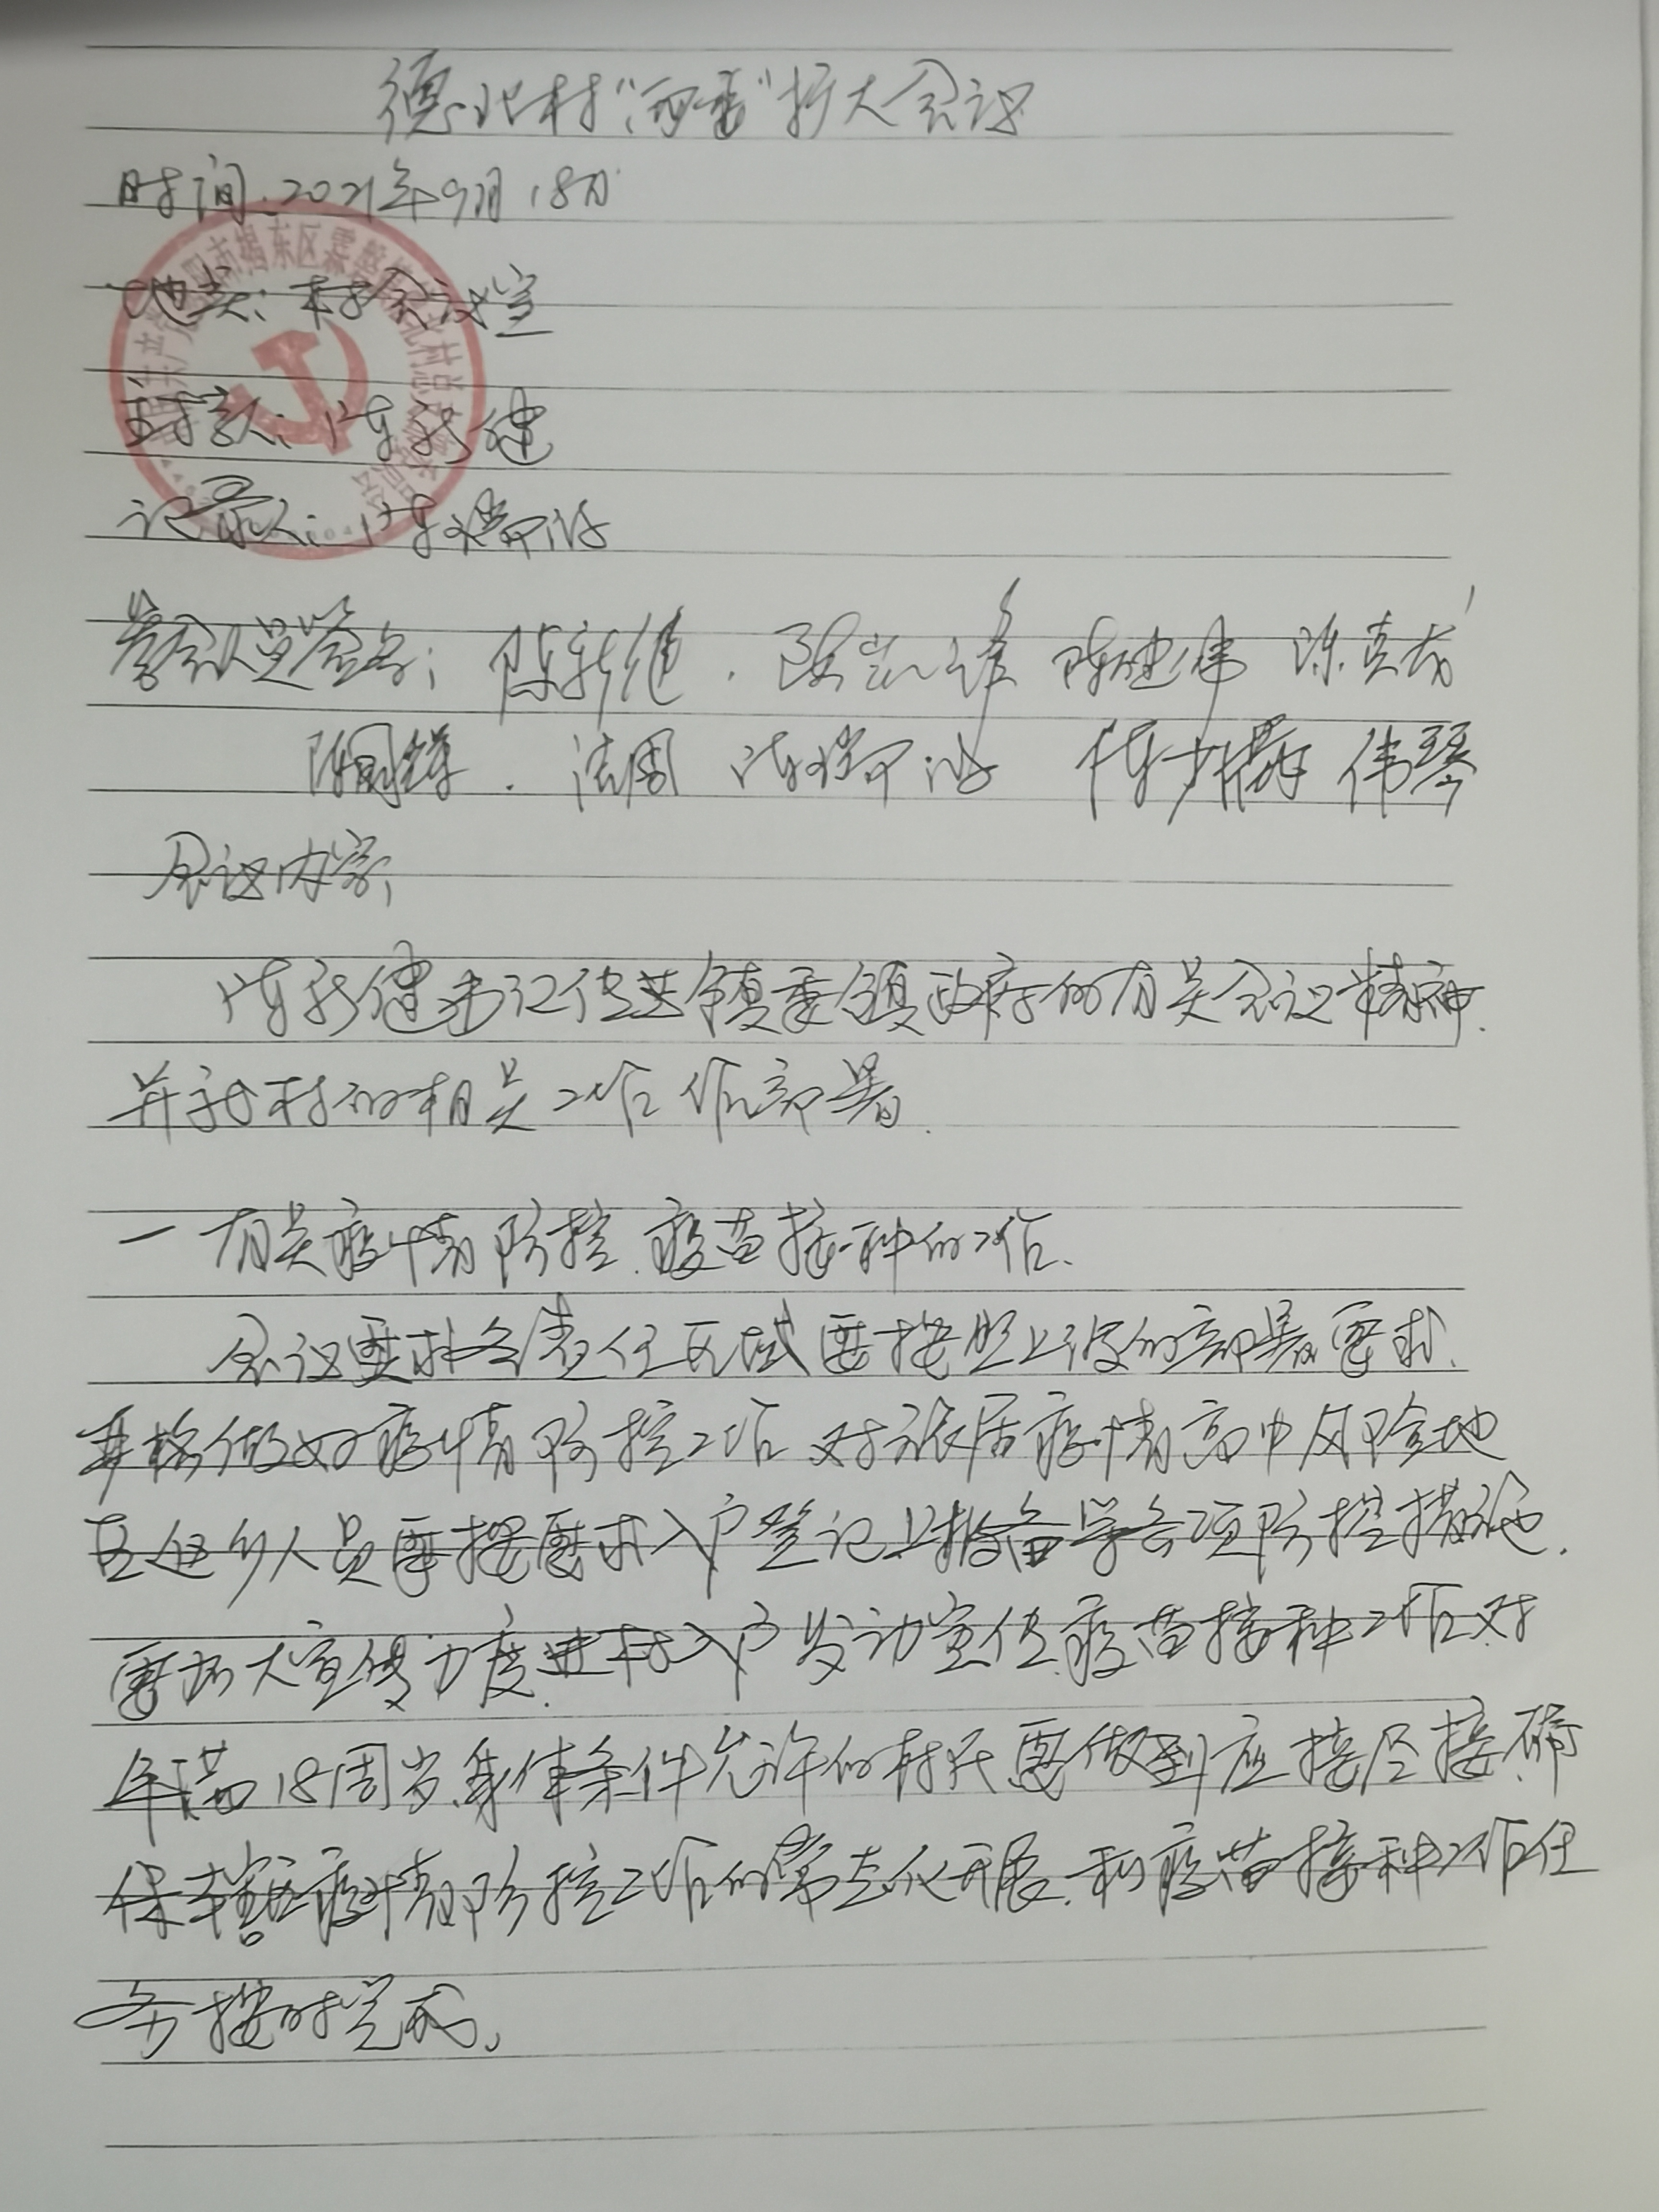 德北村“两委”扩大会议
时间:2021年9月18日
地点:村会议室
主持人:陈新健
记录人:陈瑞
参会人员签名:陈新健.陈 陈建伟 陈
陈国锋.洁周 陈瑞 陈少 伟琴
会议内容:
陈新健书记传达镇委镇政府的有关会议精神.
并就村的相关工作作部署.
一 有关疫情防控.疫苗接种的工作.
会议要求各责任区域要按照上级的部署要求.
严格做好疫情防控工作 对旅居疫情高中风险地
区返乡人员要按要求入户登记上报 各项防控措施.
要加大宣传力度.进村入户发动宣传.疫苗接种工作.对
年满18周岁.身体条件允许的村民要做到应接尽接.确
保 疫情防控工作的常态化开展.和疫苗接种工作任
务按时完成.